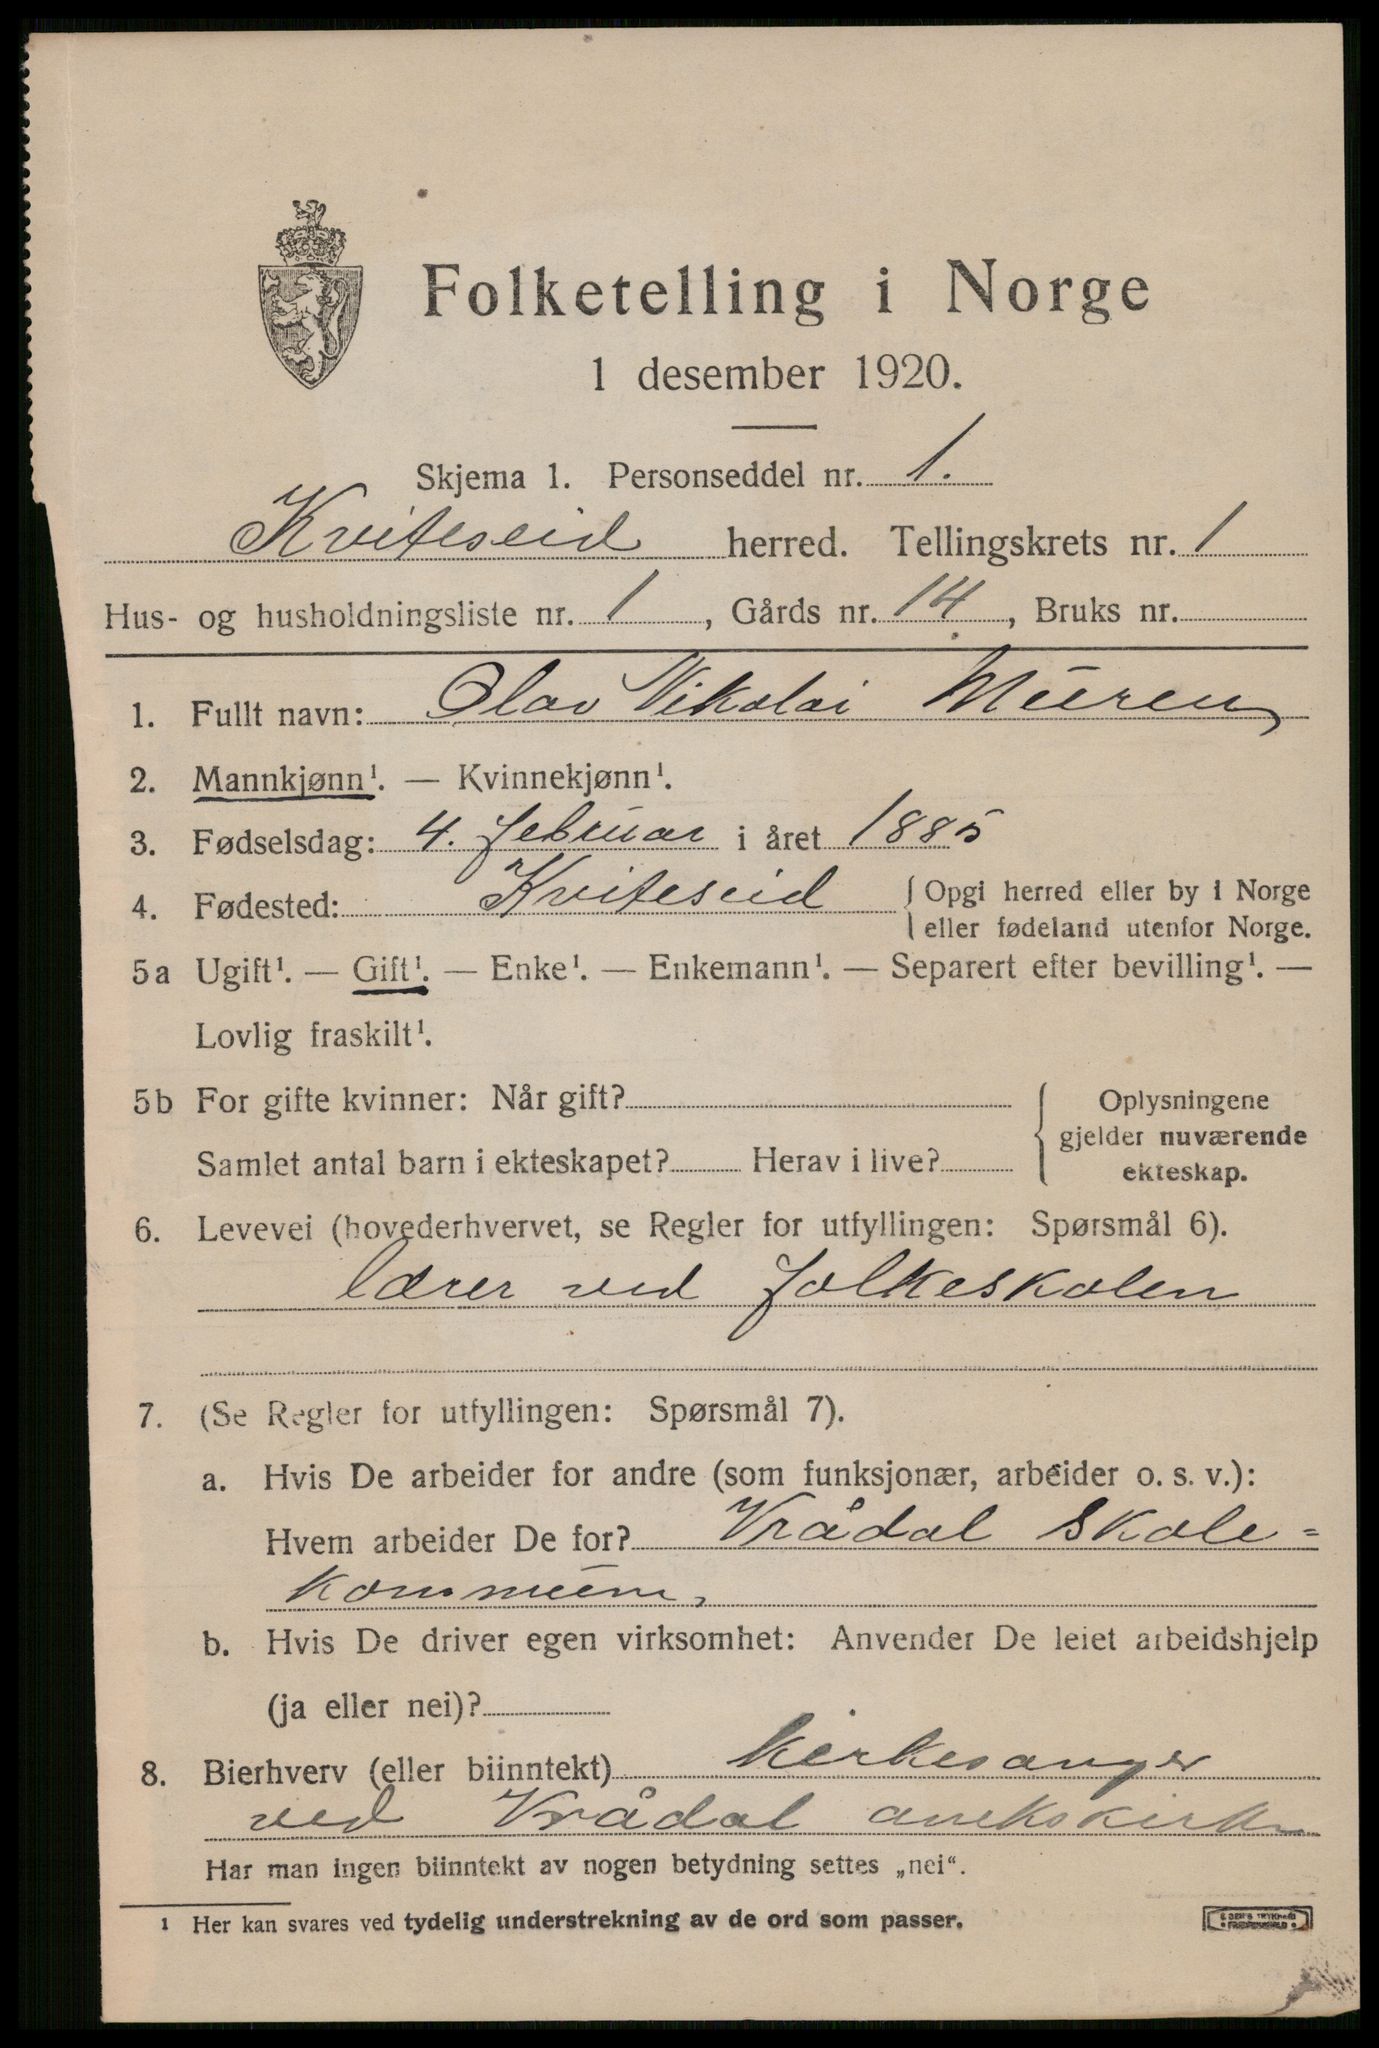 Folketelling i Norge
1 desember 1920.
Skjema 1. Personseddel nr. 1.
Kviteseid herred. Tellingskrets nr. 1
Hus- og husholdningsliste nr. 1, Gårds nr. 14, Bruks nr.
1. Fullt navn: Olav Nikolai Muren
2. Mannkjønn¹. — Kvinnekjønn¹.
3. Fødselsdag: 4. februar i året 1885
4. Fødested: Kviteseid { Opgi herred eller by i Norge
eller fødeland utenfor Norge.
5a Ugift¹. — Gift¹. — Enke¹. — Enkemann¹. — Separert efter bevilling¹. —
Lovlig fraskilt¹.
5b For gifte kvinner: Når gift? { Oplysningene
gjelder nuværende
Samlet antal barn i ekteskapet? Herav i live?
ekteskap.
6. Levevei (hovederhvervet, se Regler for utfyllingen: Spørsmål 6).
lærer ved folkeskolen
7. (Se Regler for utfyllingen: Spørsmål 7).
a. Hvis De arbeider for andre (som funksjonær, arbeider o. s. v.):
Hvem arbeider De for? Vrådal skole-
kommune,
b. Hvis De driver egen virksomhet: Anvender De leiet arbeidshjelp
(ja eller nei)?
8. Bierhverv (eller biinntekt) kirkesanger
ved Vrådal annekskirke
Har man ingen biinntekt av nogen betydning settes „nei“.
¹ Her kan svares ved tydelig understrekning av de ord som passer.